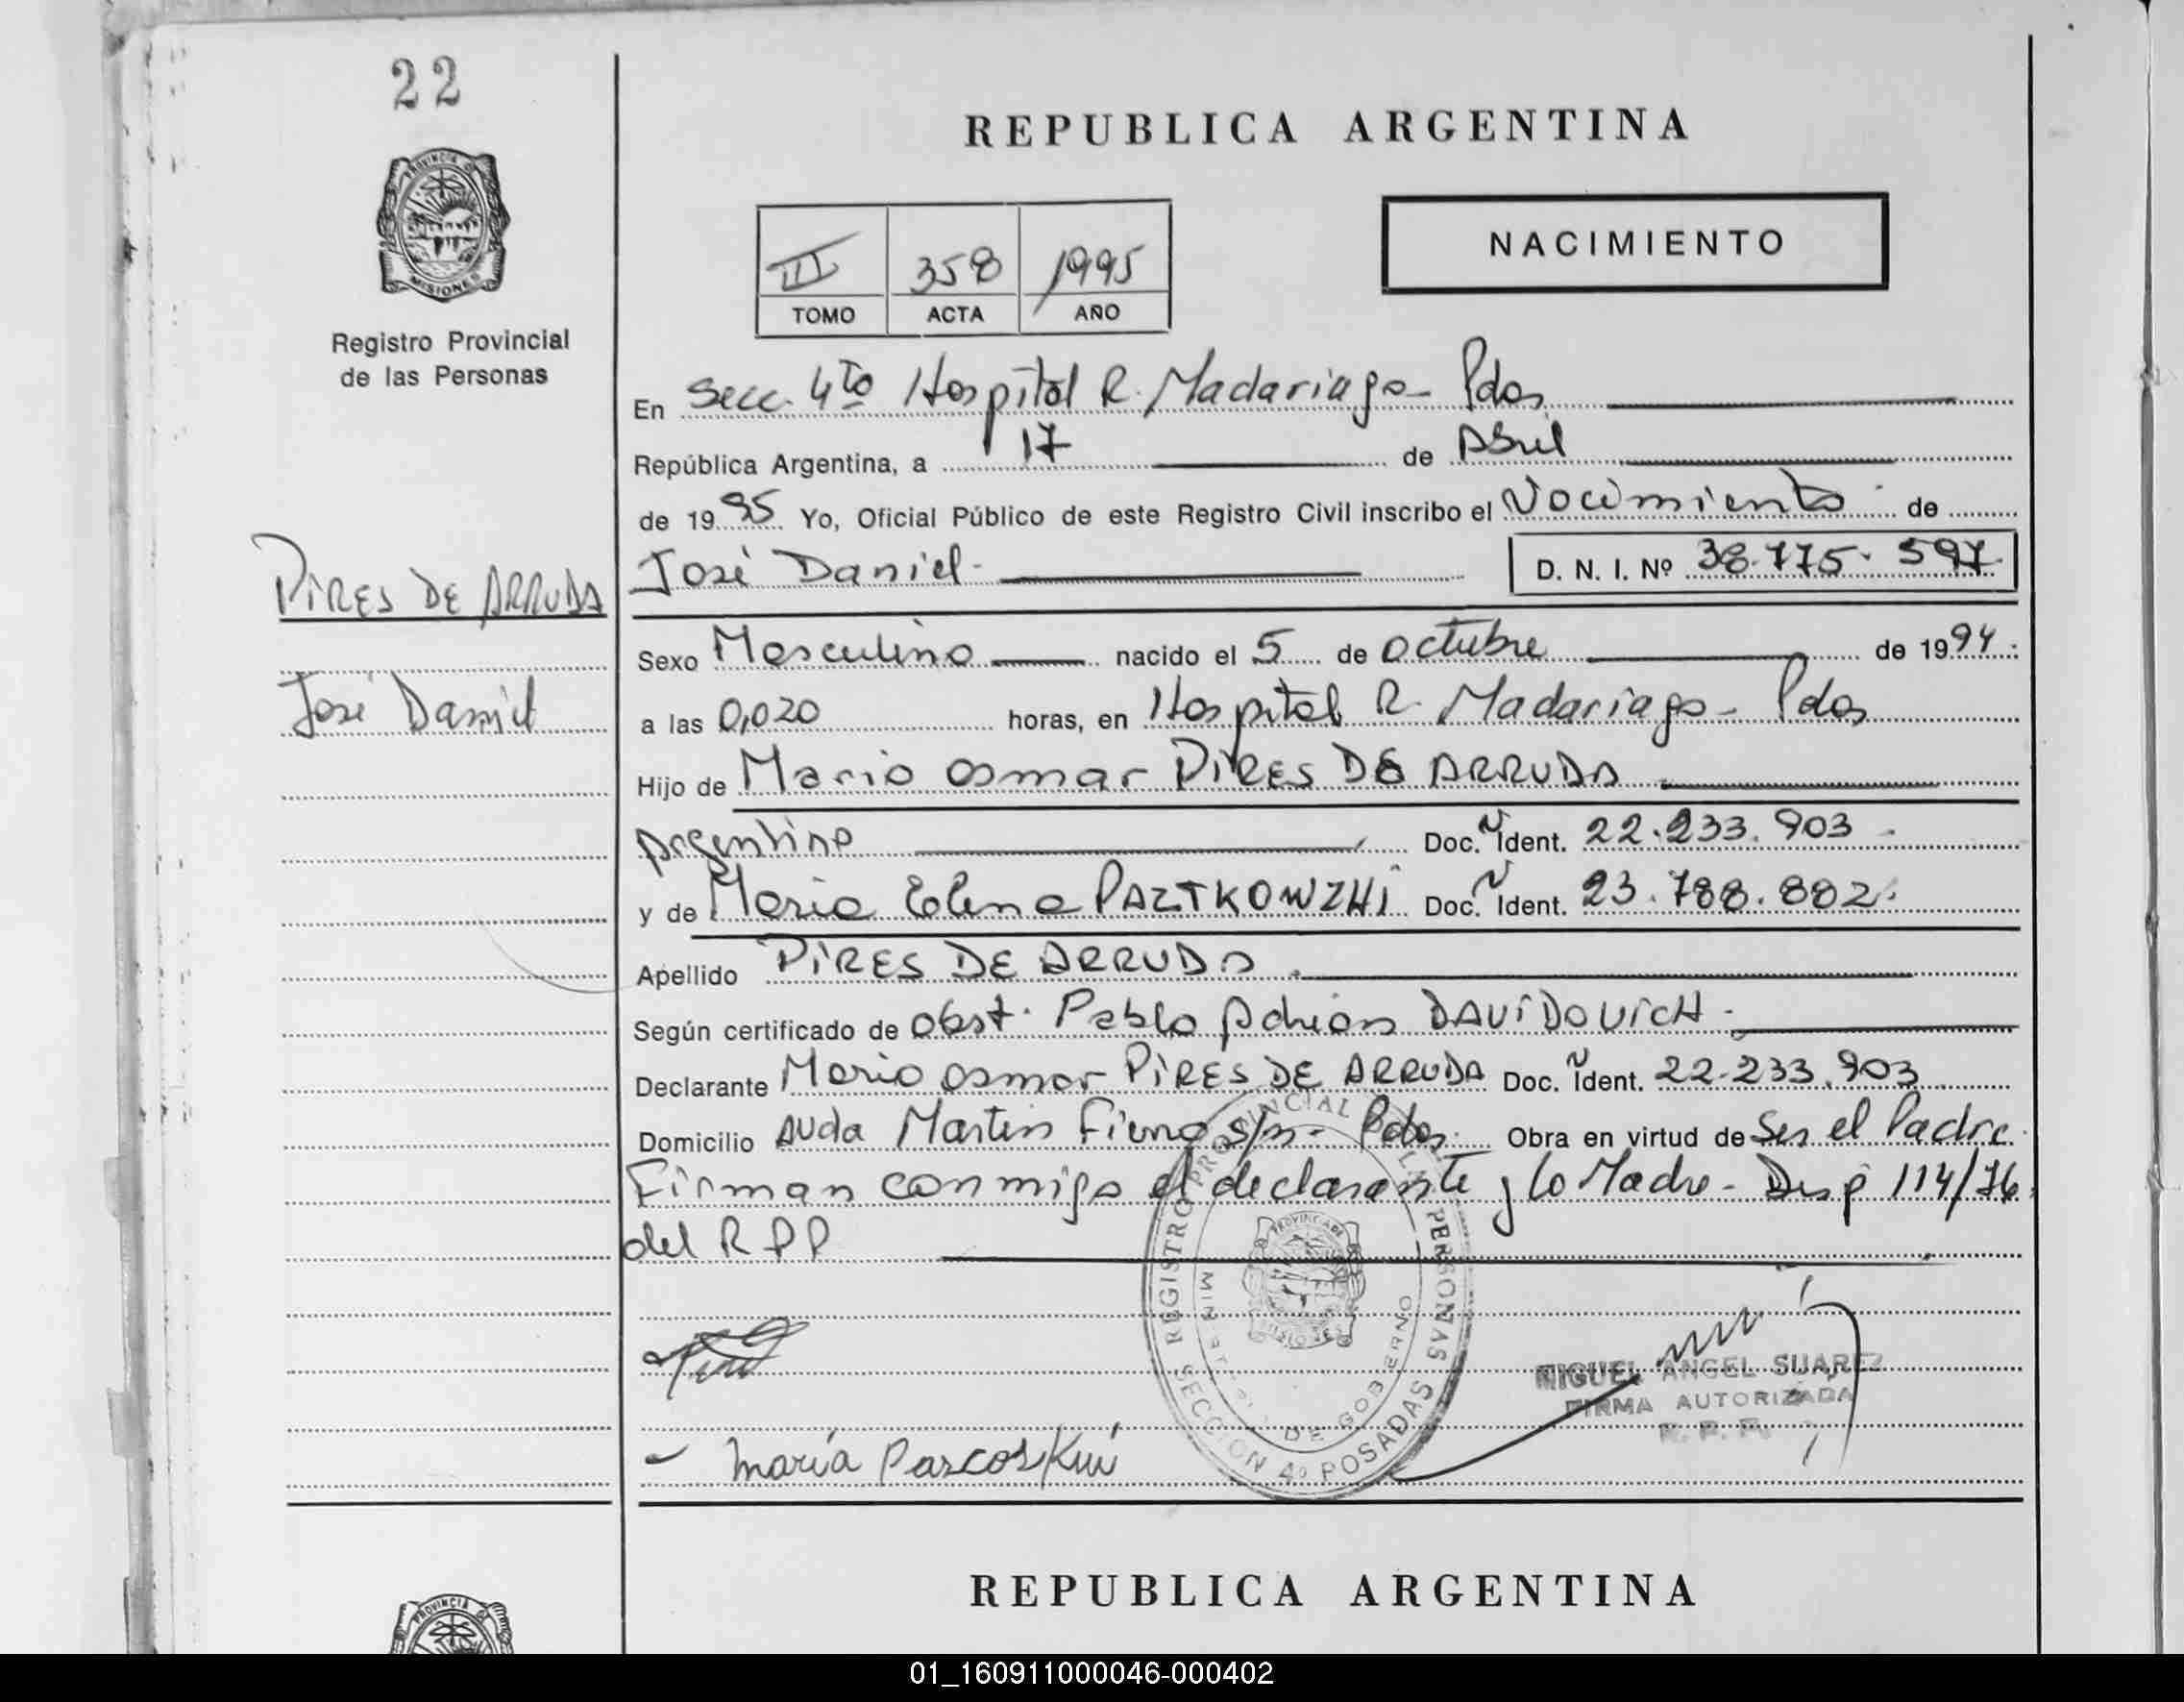 22
PROVINCIA DE
MISIONES
Registro Provincial
de las Personas
PIRES DE ARRUDA
José Daniel
REPUBLICA ARGENTINA
III 358 1995
TOMO ACTA AÑO
NACIMIENTO
En Secc. 4to Hospital R. Madariaga - Pdas
República Argentina, a 17 de Abril
de 1995 Yo, Oficial Público de este Registro Civil inscribo el Nacimiento de
José Daniel - D. N. I. Nº 38.775.597
Sexo Masculino nacido el 5 de octubre de 1994
a las 0,020 horas, en Hospital R. Madariaga - Pdas
Hijo de Mario Osmar PIRES DE ARRUDA
Argentino Doc. Ident. 22.233.903
y de María Elena PAZTKOWZHI Doc. Ident. 23.788.882
Apellido PIRES DE ARRUDA
Según certificado de obst. Pablo Adrián DAVIDOVICH
Declarante Mario Osmar PIRES DE ARRUDA Doc. Ident. 22.233.903
Domicilio Avda Martin Fierro s/n - Pdas Obra en virtud de Ser el Padre
Firman conmigo el declarante y la Madre - Disp 114/76
del RPP
REGISTRO PROVINCIAL DE LAS PERSONAS
MINISTERIO DE GOBIERNO
SECCION 4º POSADAS
MIGUEL ANGEL SUAREZ
FIRMA AUTORIZADA
R. P. P.
- María Pascoskui
REPUBLICA ARGENTINA
PROVINCIA
01_160911000046-000402